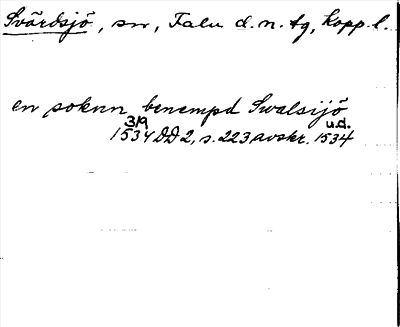 Svärdsjö, sn, Falu d.n. tg, Kopp. l.
en soknn benempd Swalsijö
3/9 u.d.
1534 DD 2, s. 223, avskr. 1534